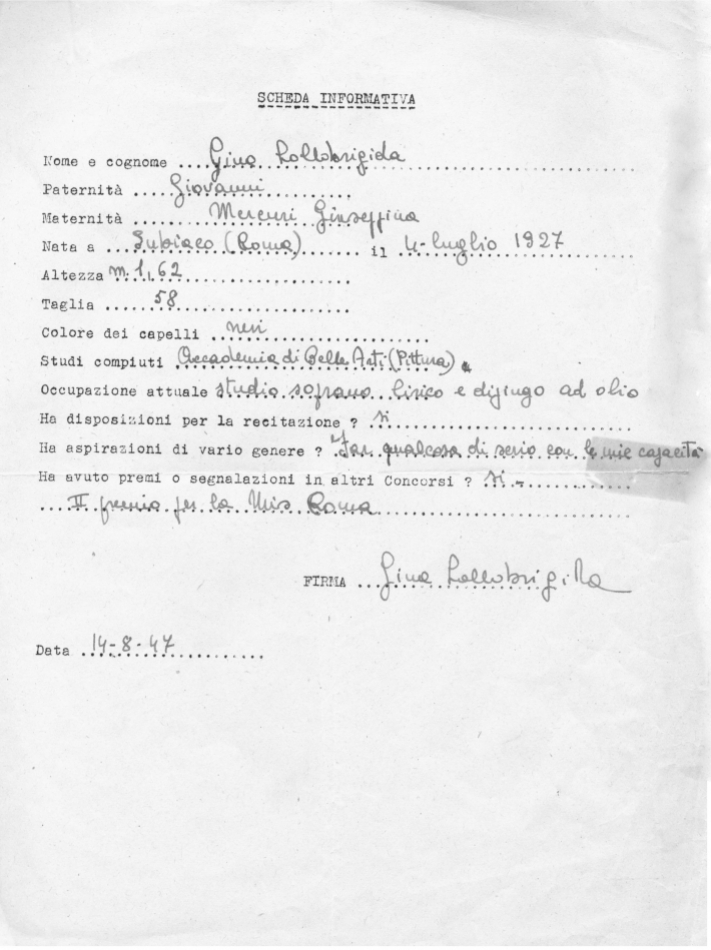 SCHEDA INFORMATIVA
Nome e cognome ....Gina Lollobrigida
Paternità ....Giovanni
Maternità ....Mercuri Giuseppina
Nata a ...Subiaco (Roma)....... il 4 luglio 1927
Altezza m. 1,62
Taglia ......58
Colore dei capelli ..neri
Studi compiuti Accademia di Belle Arti (Pittura)
Occupazione attuale studio soprano lirico e dipingo ad olio
Ha disposizioni per la recitazione ? si
Ha aspirazioni di vario genere ? Far qualcosa di serio con le mie capacità
Ha avuto premi o segnalazioni in altri Concorsi ? si -
II premio per la Miss Roma
FIRMA ...Gina Lollobrigida
Data .14-8-47